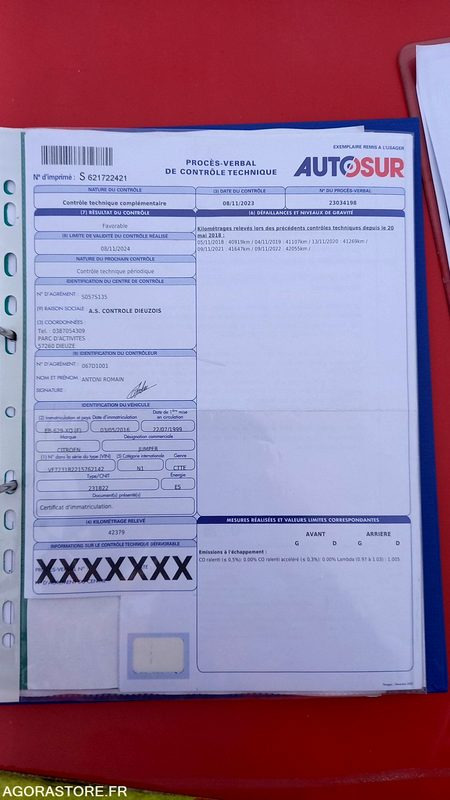 EXEMPLAIRE REMIS A L'USAGER
AUTOSUR
PROCÈS-VERBAL
DE CONTRÔLE TECHNIQUE
N° d'imprimé : S 621722421
NATURE DU CONTRÔLE
Contrôle technique complémentaire
(3) DATE DU CONTRÔLE
08/11/2023
N° DU PROCÈS-VERBAL
23034198
(7) RÉSULTAT DU CONTRÔLE
Favorable
(8) LIMITE DE VALIDITÉ DU CONTRÔLE RÉALISÉ
08/11/2024
NATURE DU PROCHAIN CONTRÔLE
Contrôle technique périodique
(6) DÉFAILLANCES ET NIVEAUX DE GRAVITÉ
Kilométrages relevés lors des précédents contrôles techniques depuis le 20
mai 2018 :
05/11/2018 : 40919km / 04/11/2019 : 41107km / 13/11/2020 : 41269km /
09/11/2021 : 41647km / 09/11/2022 : 42055km /
IDENTIFICATION DU CENTRE DE CONTRÔLE
N° D'AGRÉMENT S057S135
(9) RAISON SOCIALE A.S. CONTROLE DIEUZOIS
(3) COORDONNÉES
Tel. : 0387054309
PARC D'ACTIVITES
57260 DIEUZE
(9) IDENTIFICATION DU CONTRÔLEUR
N° D'AGRÉMENT 067D1001
NOM ET PRÉNOM ANTONI ROMAIN
SIGNATURE
IDENTIFICATION DU VÉHICULE
(2) Immatriculation et pays
Date d'immatriculation
Date de 1ère mise
en circulation
EB-629-XQ (F)
03/05/2016
22/07/1999
Marque
Désignation commerciale
CITROEN
JUMPER
(1) N° dans la série du type (VIN)
(5) Catégorie internationale
Genre
VF7231B2215762142
N1
CTTE
Type/CNIT
Energie
231B22
ES
Document(s) présenté(s)
Certificat d'immatriculation.
(4) KILOMÉTRAGE RELEVÉ
42379
INFORMATIONS SUR LE CONTRÔLE TECHNIQUE DÉFAVORABLE
XXXXXXXX
MESURES RÉALISÉES ET VALEURS LIMITES CORRESPONDANTES
AVANT
ARRIERE
G D G D
Emissions à l'échappement :
CO ralenti (≤ 0,5%): 0.00% CO ralenti accéléré (≤ 0,3%): 0.00% Lambda (0.97 à 1.03) : 1.005
AGORASTORE.FR